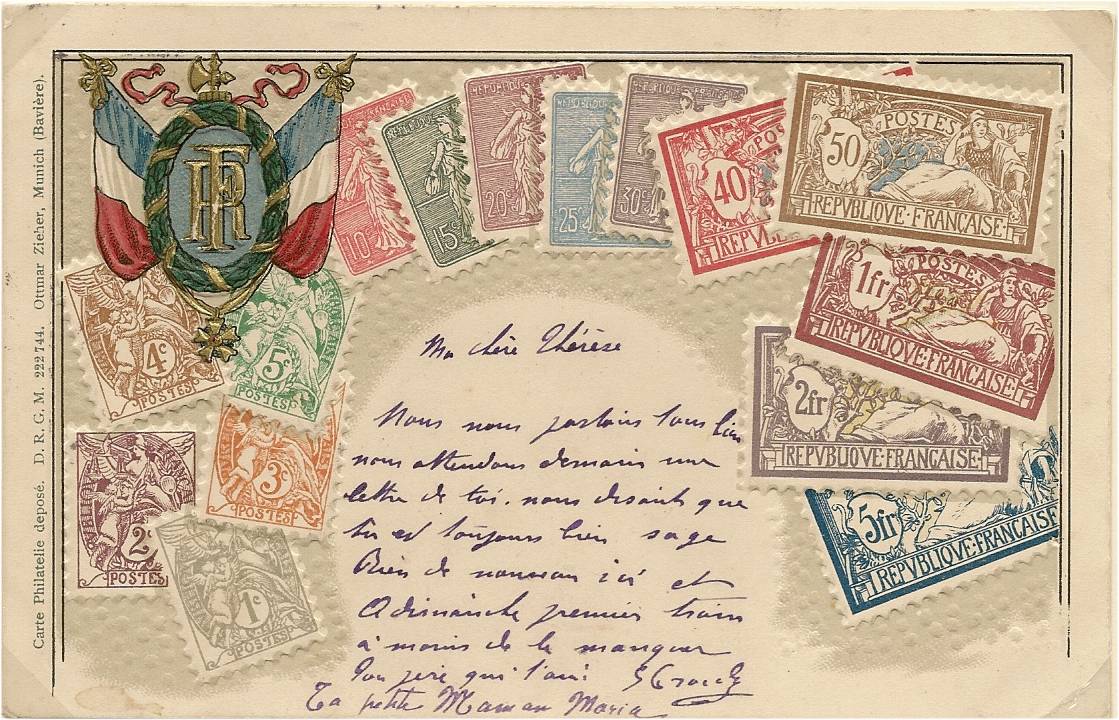 Carte Philatelie deposé. D. R. G. M. 222 744. Ottmar Zieher, Munich (Bavière).
RF
10c
RÉPUBLIQUE
15c
RÉPUBLIQUE FRANÇAISE
20c
25c
30c
40
POSTES
REPV
50
POSTES
REPVBLIQVE·FRANÇAISE
1fr
POSTES
REPVBLIQVE·FRANÇAISE
2fr
REPVBLIQVE·FRANÇAISE
5fr
REPVBLIQVE·FRANÇAISE
4c
POSTES
5c
POSTES
2c
POSTES
3c
POSTES
1c
POSTES
Ma chère Thérèse
Nous nous portons tous bien
nous attendons demain une
lettre de toi. nous disant que
tu est toujours bien sage
Rien de nouveau ici et
A dimanche premier train
à moins de le manquer
Ton père qui t'aime
Ta petite Maman Maria